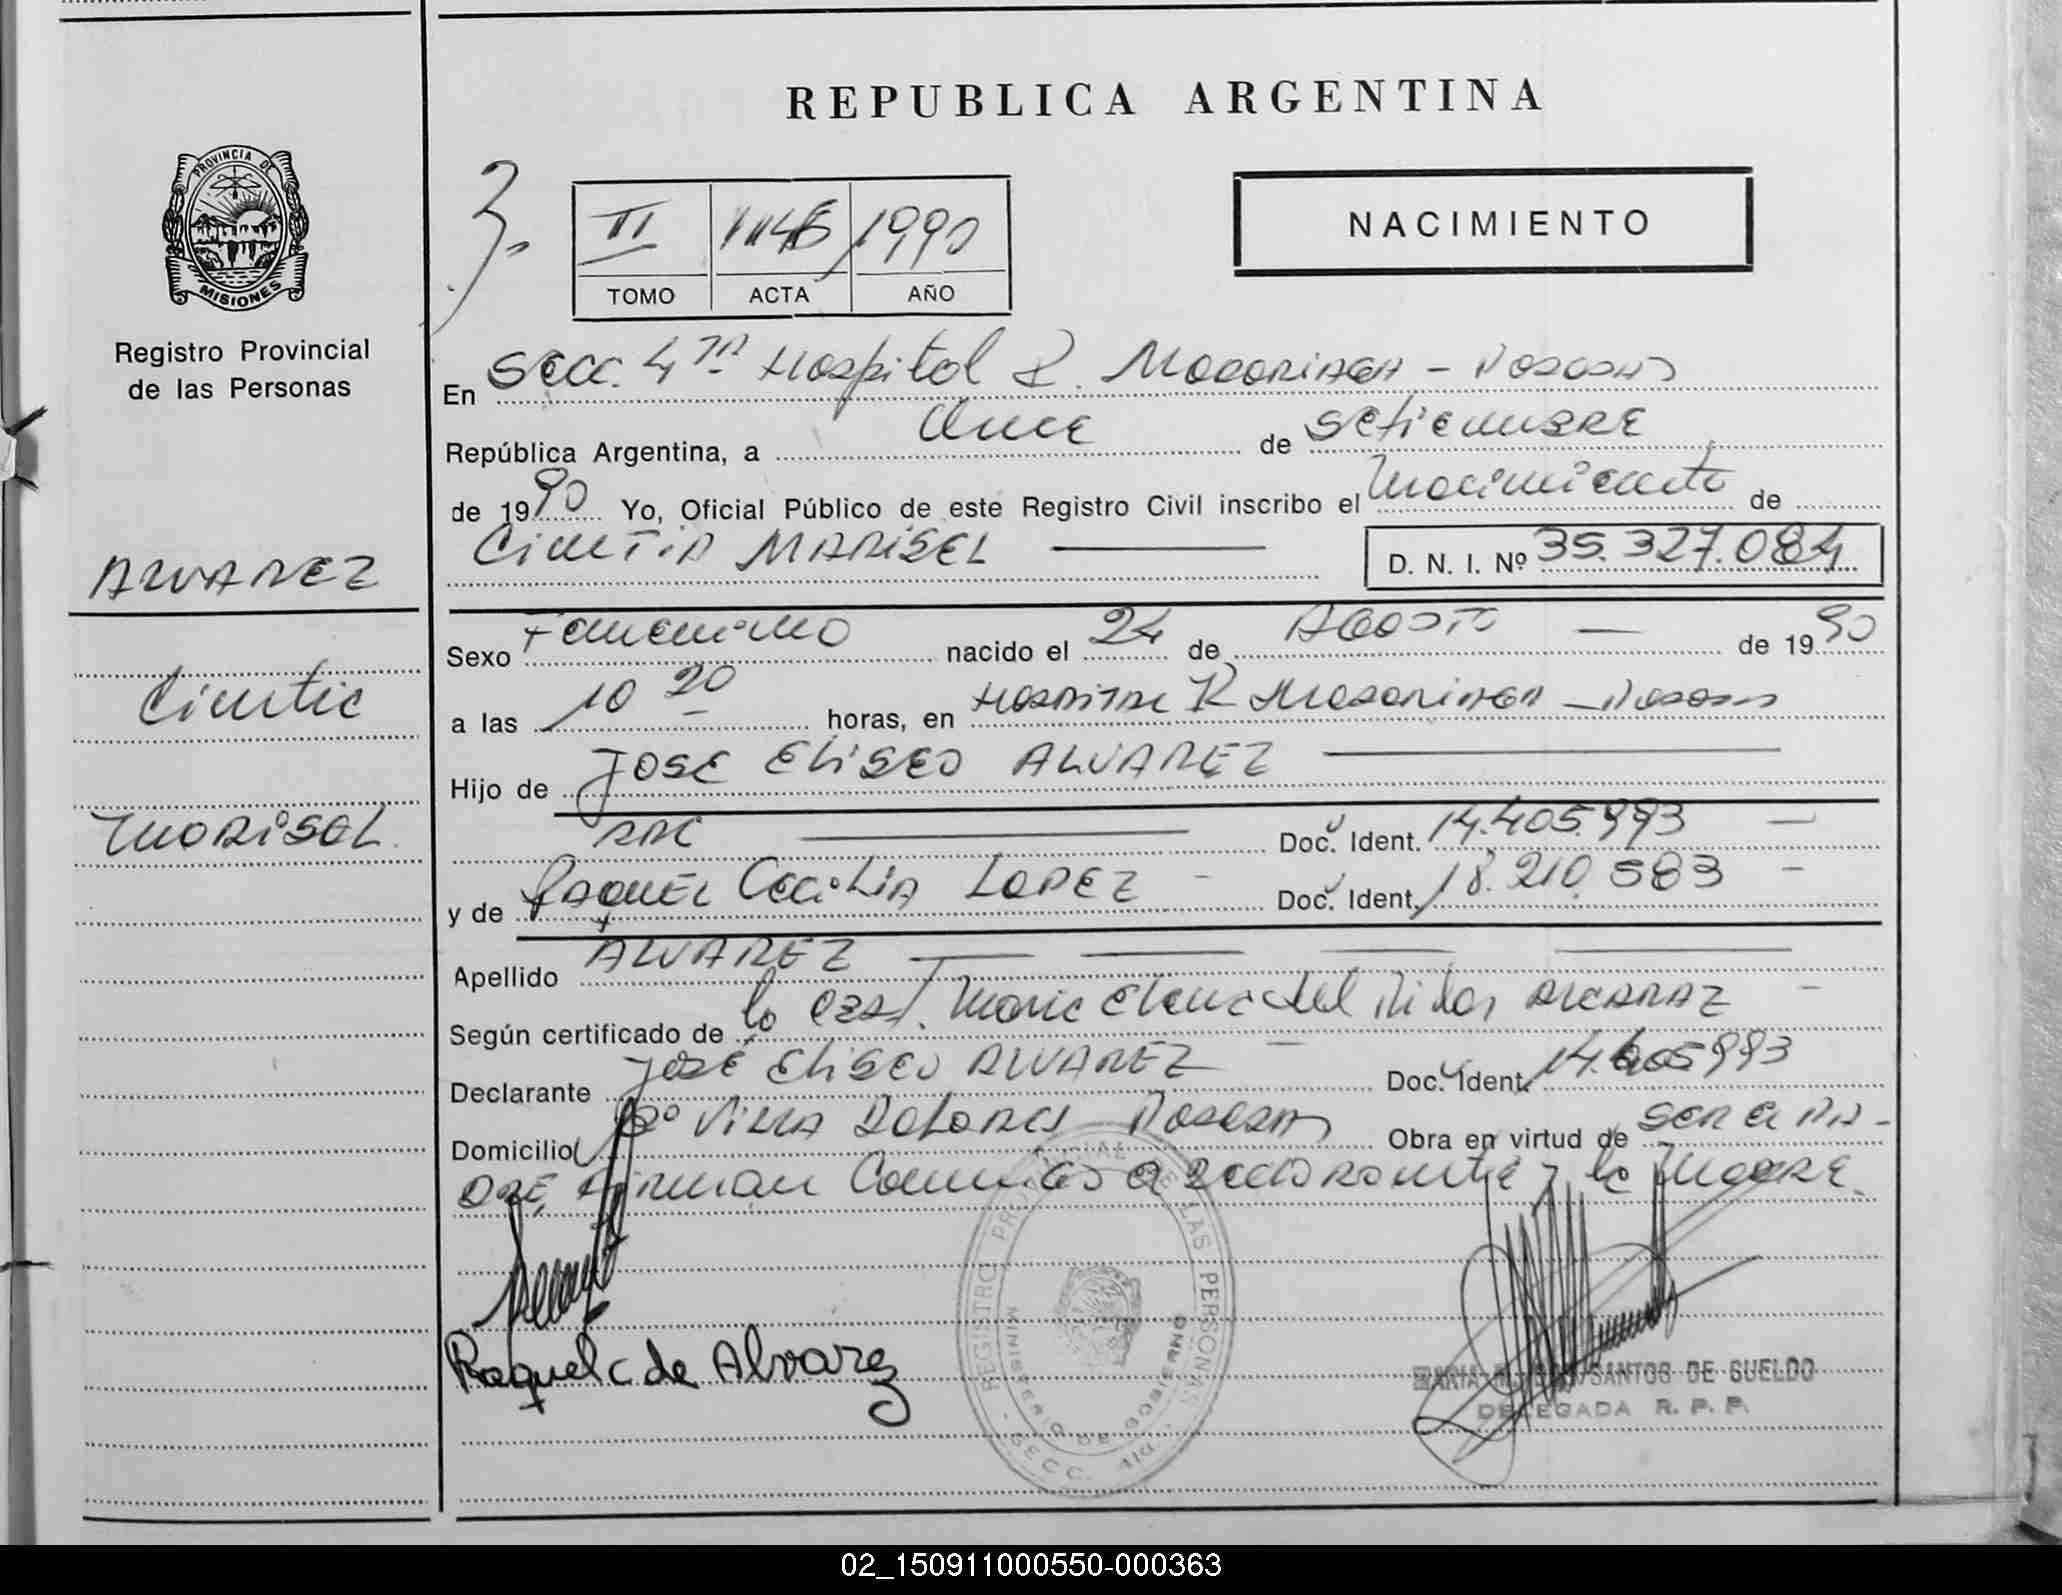 REPUBLICA ARGENTINA
PROVINCIA DE
MISIONES
Registro Provincial
de las Personas
II 1990
TOMO ACTA AÑO
NACIMIENTO
En Secc. 4ta Hospital R. Madariaga - Posadas
República Argentina, a Once de Setiembre
de 1990 Yo, Oficial Público de este Registro Civil inscribo el Nacimiento de
Cintia MARISEL D. N. I. Nº 35.327.084
ALVAREZ
Cintia
MARISEL
Sexo Femenino nacido el 24 de AGOSTO de 1990
a las 10 20 horas, en Hospital R Madariaga - Posadas
Hijo de JOSE ELISEO ALVAREZ
ARG Doc. Ident. 14.405.993
y de RAQUEL CECILIA LOPEZ Doc. Ident. 18.210.583
Apellido ALVAREZ
Según certificado de la Maria Elena del Pilar ALCARAZ
Declarante José ELISEO ALVAREZ Doc. Ident. 14.405993
Domicilio Bº VILLA DOLORES Posadas Obra en virtud de SER EL PA-
DRE, Firman Conmigo el declarante y la MADRE
Raquel c de Alvarez
REGISTRO PROVINCIAL DE LAS PERSONAS
MINISTERIO DE GOBIERNO
SECC. 4ta
SANTOS DE SUELDO
DELEGADA R. P. P.
02_150911000550-000363